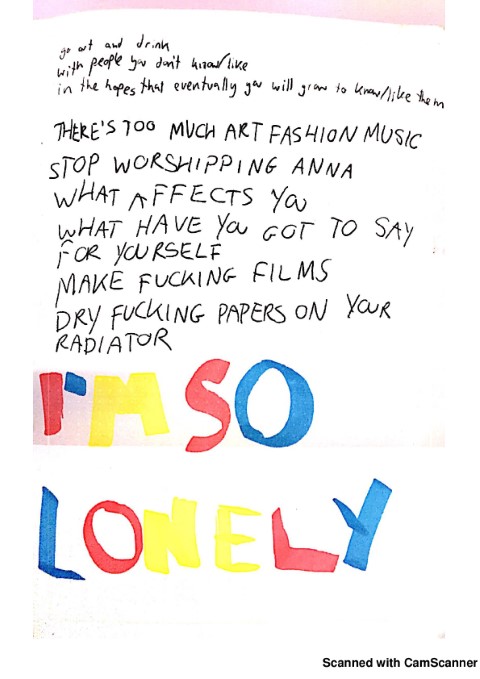 go out and drink
with people you don't know/like
in the hopes that eventually you will grow to know/like them
THERE'S TOO MUCH ART FASHION MUSIC
STOP WORSHIPPING ANNA
WHAT AFFECTS YOU
WHAT HAVE YOU GOT TO SAY
FOR YOURSELF
MAKE FUCKING FILMS
DRY FUCKING PAPERS ON YOUR
RADIATOR
I'M SO
LONELY
Scanned with CamScanner